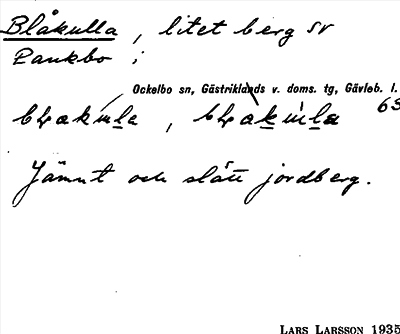 Blåkulla, litet berg SV
Pankbo ;
Ockelbo sn, Gästriklands v. doms. tg, Gävleb. l.
63
Jämnt och slätt jordberg.
LARS LARSSON 1935